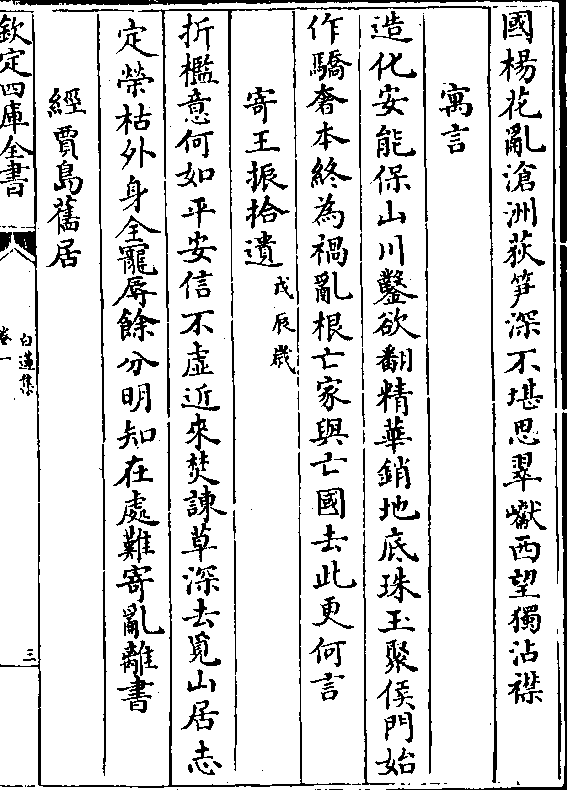 國楊花亂滄洲荻笋深不堪思翠巘西望獨沾襟
寓言
造化安能保山川鑿欲翻精華銷地底珠玉聚侯門始
作驕奢本終為禍亂根亡家與亡國去此更何言
寄王振拾遺戊辰歲
折檻意何如平安信不虛近來焚諫草深去覓山居志
定榮枯外身全寵辱餘分明知在處難寄亂離書
經賈島舊居
欽定四庫全書
白蓮集
卷一
三